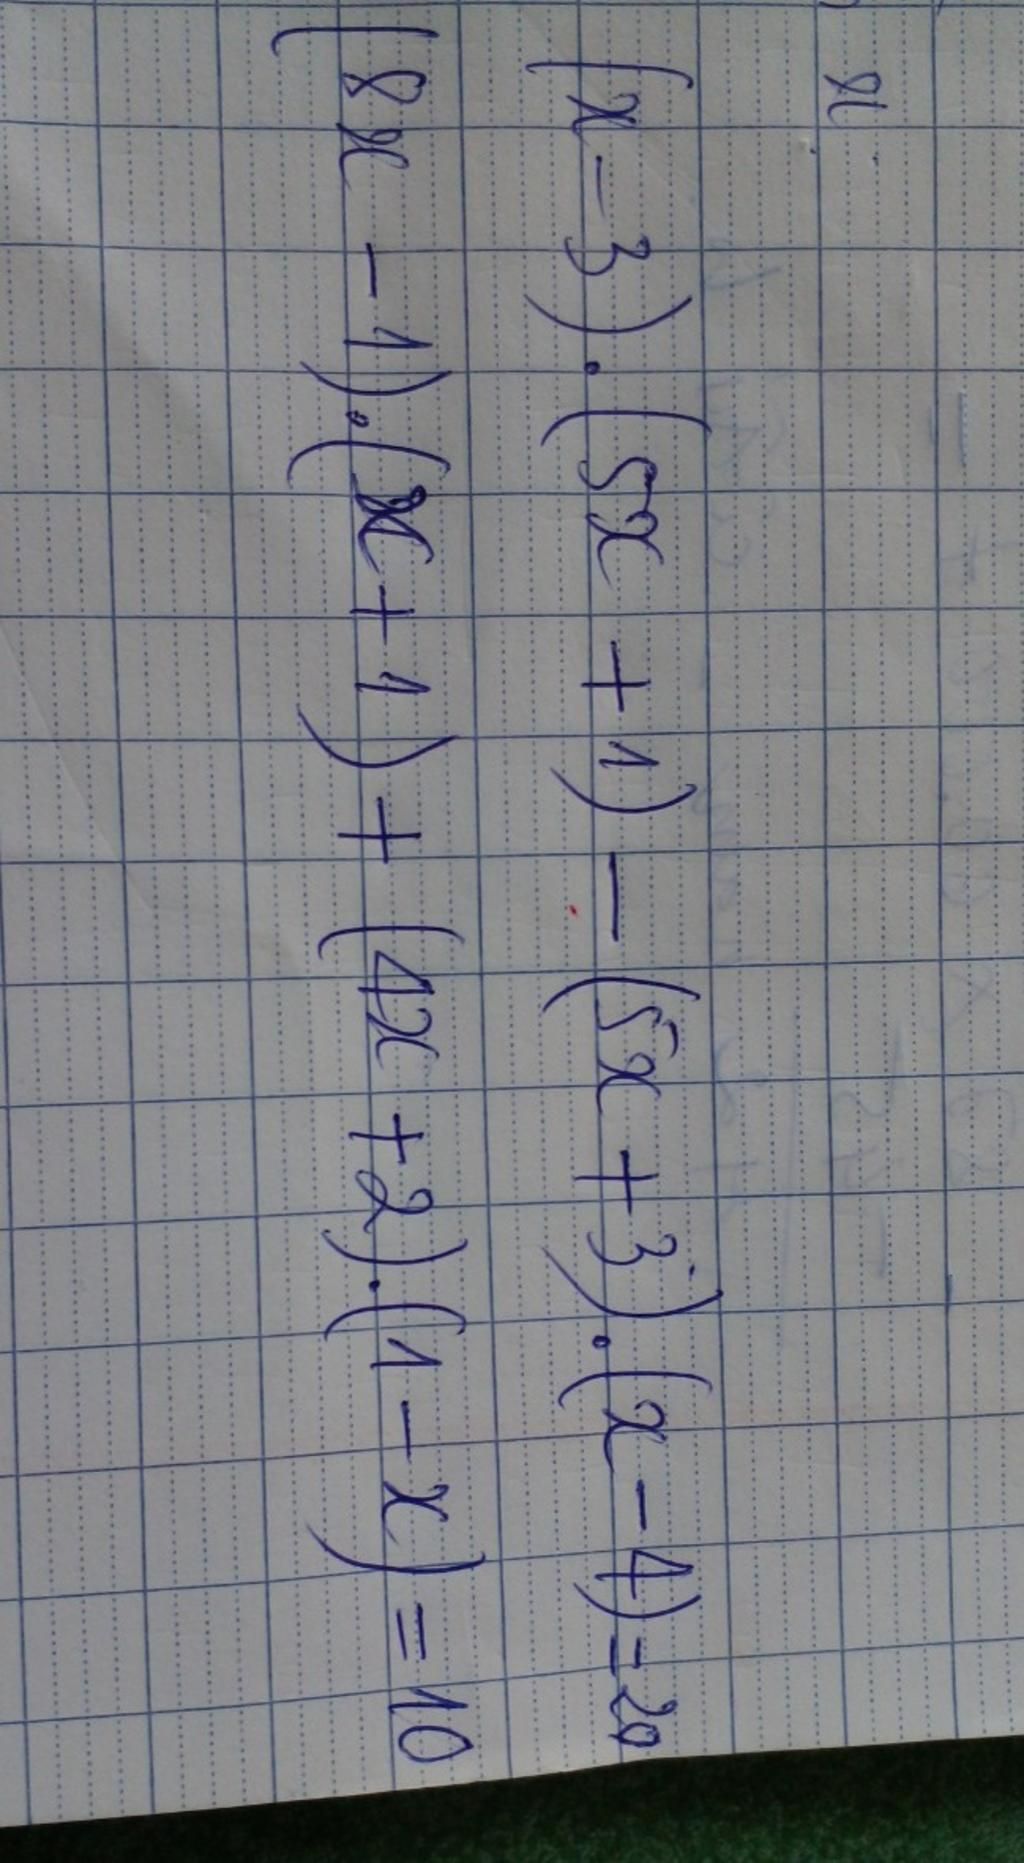 x
(x - 3).(5x + 1) - (5x + 3).(x - 4) = 20
(8x - 1).(x + 1) + (4x + 2).(1 - x) = 10